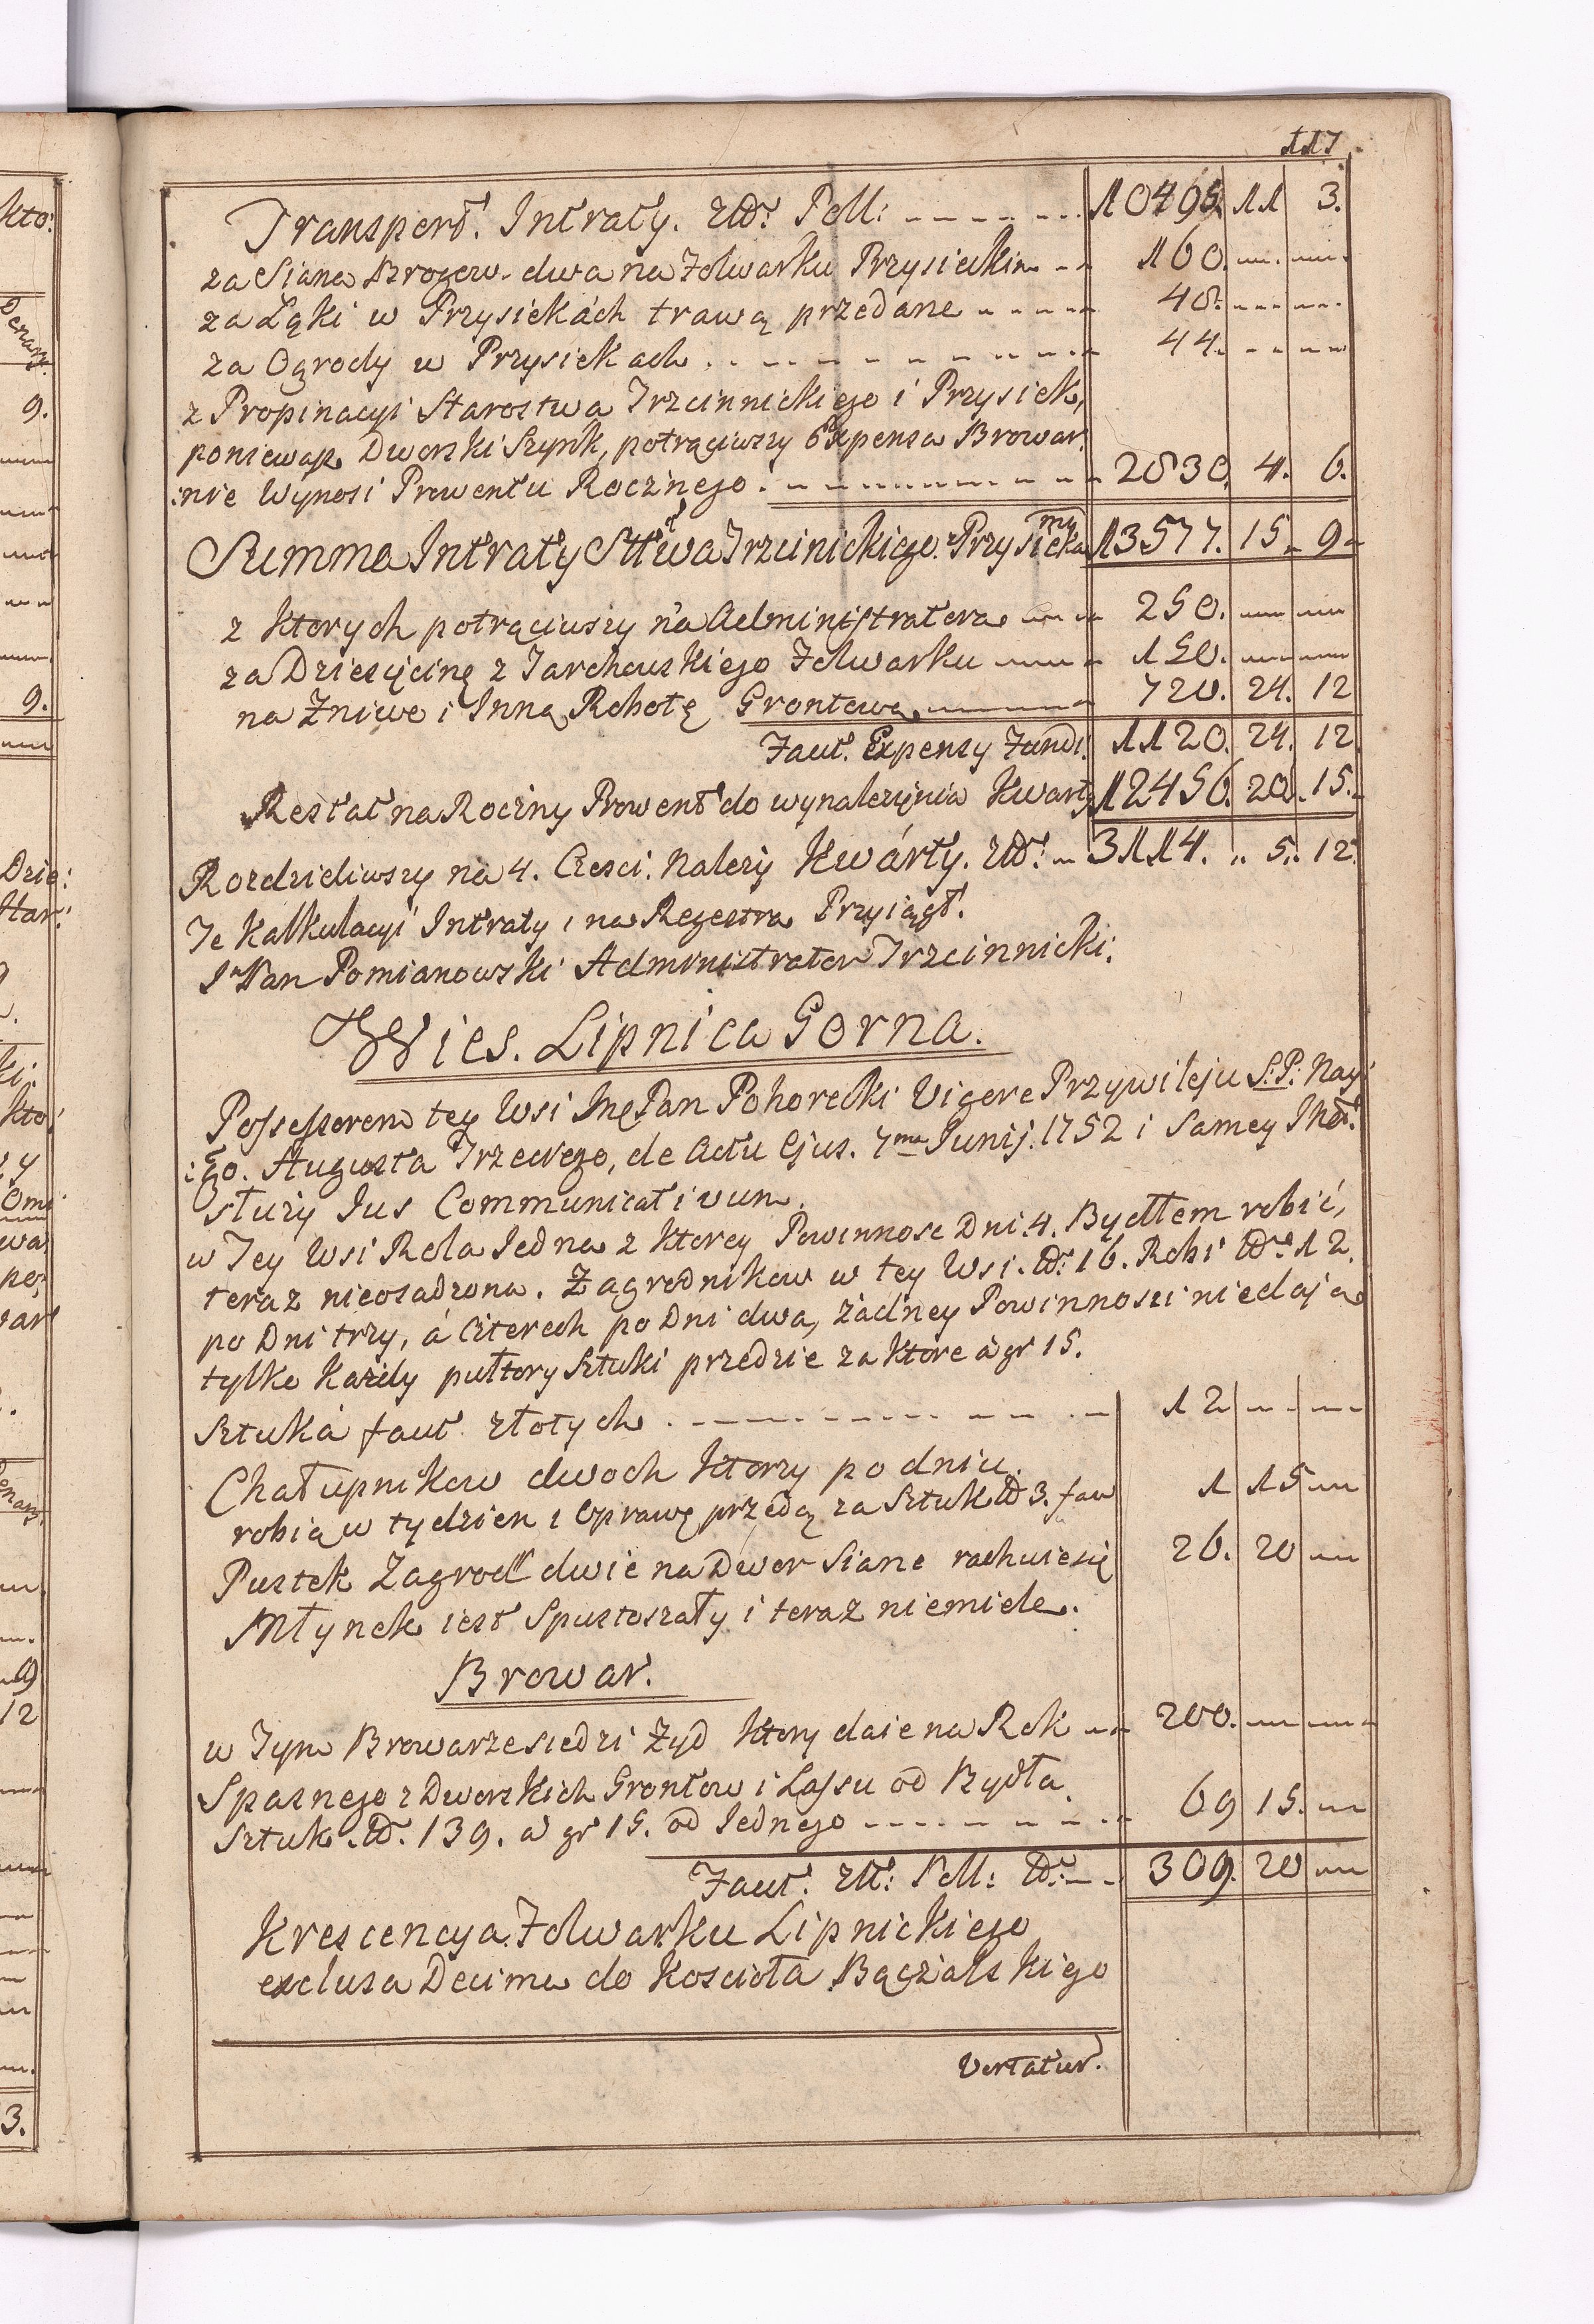 117
Transport. Intraty. Złł: Poll: 10495. 11 3.
za Siana Brogow dwa na Folwarku Przysieckim 160.
za Łąki w Przysiekách trawą przedane 48.
za Ogrody w Przysiekach 44.
z Propinacyi Starostwa Trzcinnickiego i Przysiek,
poniewasz Dworski Szynk, potrąciwszy Expensa Browar:
:nie Wynosi Prowentu Rocznego. 2830. 4. 6.
Summa Intraty Sttwa Trzcinickiego z Przysiekamy 13577. 15. 9
z ktorych potrąciwszy na Administratora 250.
za Dziesięcinę z Jarchowskiego Folwarku 150.
na Zniwo i Inną Robotę Grontową 720. 24. 12
Facit. Expensy Fundi. 1120. 24. 12
Restat na Roczny Prowent do wynalezięnia Kwarty 12456. 20. 15.
Rozdzieliwszy na 4. Czesci. Nalezy Kwárty. Złł: 3114. 5. 12.
Te Kalkulacyi Intraty i na Regestra Przyiągł.
Jmć Pan Pomianowski Administrator Trzcinnicki.
Wies. Lipnica Gorna.
Possessorem tey Wsi Jmę Pan Pohorecki Vigore Przywileju S: P: Nay
:ięgo. Augusta Trzeciego, de Actu Ejus. 7ma Junij. 1752 i Samey Jmći.
służy Jus Communicativum.
w Tey Wsi Rola Jedna z ktorey Powinnosc Dni. 4. Bydłem robić,
teraz nieosadzona. Zagrodnikow w tey Wsi. No. 16. Robi No. 12.
po Dni trzy, á czterech po Dni dwa, żadney Powinnosci niedają
tylko Każdy pułtory Sztuki przedzie za ktore á gr 15.
Sztuká facit złotych 12
Chałupnikow dwoch ktorzy po dniu.
robią w tydzien i Oprawę przędą za Sztuk No 3. fac 1 15
Pustek Zagrod dwie na Dwor Siane rachuiesię 26. 20
Młynek iest Spustoszały i teraz niemiele.
Browar.
w Tym Browarze siedzi Żyd ktory daie na Rok 200.
Spasnego z Dworskich Grontow i Lassu od Bydła.
Sztuk. No. 139. á gr 15. od Jednego 69 15.
Facit. Złł: Poll: No. 309. 20
Krescencya Folwarku Lipnickiego
exclusa Decima do Kosciola Bączalskiego
Vertatur.